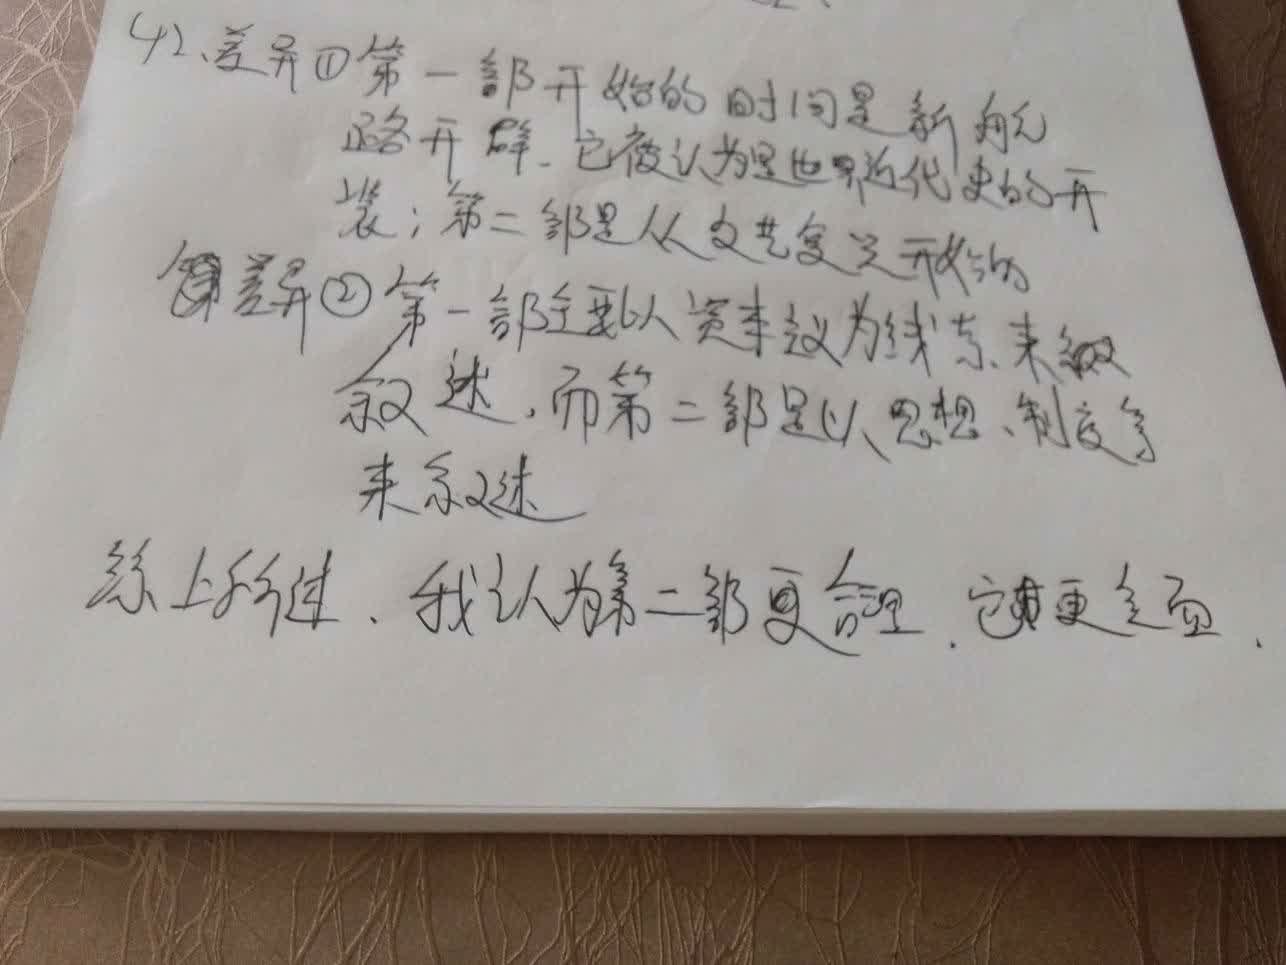 42、差异①第一部开始的时间是新航
路开辟、它被认为是世界近代史的开
装；第二部是从文艺复兴开始的
差异②第一部主要以资本主义为线索、来
叙述、而第二部是以思想、制度等
来叙述
综上所述、我认为第二部更合理．它更全面．